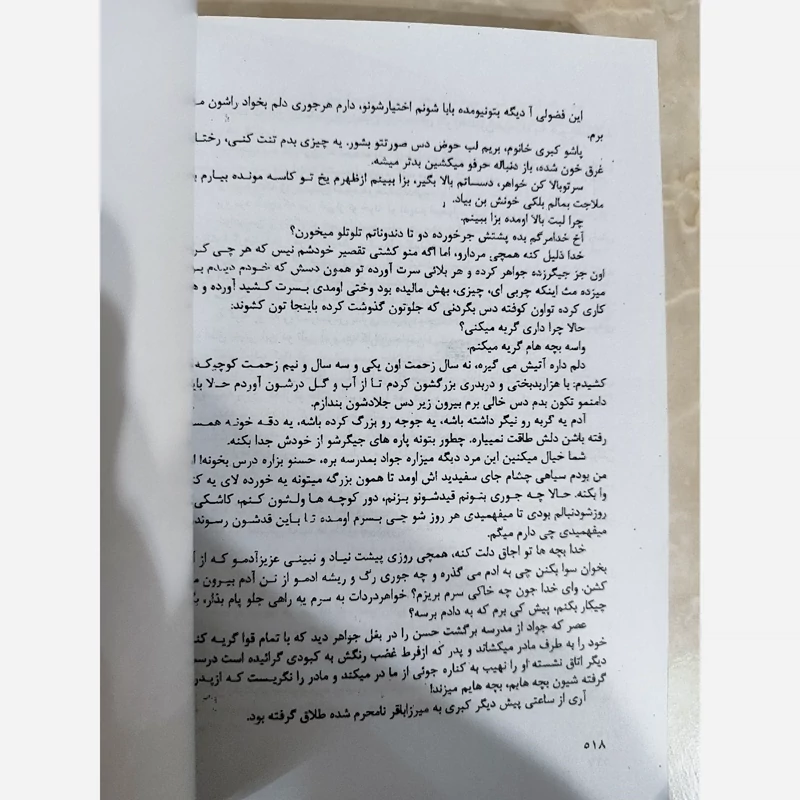 این فضولی آ دیگه بتونیومده بابا شونم اختیارشونو، دارم هرجوری دلم بخواد راشون
برم.
پاشو کبری خانوم، بریم لب حوض دس صورتتو بشور. یه چیزی بدم تنت کنی، رختا
غرق خون شده، باز دنباله حرفو میکشین بدتر میشه.
سرتوبالا کن خواهر، دسساتم بالا بگیر، بزا ببینم ازظهرم یخ تو کاسه مونده بیارم
ملاجت بمالم بلکی خونش بن بیاد.
چرا لبت بالا اومده بزا ببینم.
آخ خدامرگم بده پشتش جرخورده دو تا دندوناتم تلوتلو میخورن؟
خدا ذلیل کنه همچی مردارو، اما اگه منو کشتی تقصیر خودشم نیس که هر چی
اون جز جیگرزده جواهر کرده و هر بلائی سرت آورده تو همون دسش که خودم دیدم
میزده مث اینکه چربی ای، چیزی، بهش مالیده بود وختی اومدی بسرت کشید آورده و
کاری کرده تواون کوفته دس بگردنی که جلوتون گذوشت کرده باینجا تون کشوند:
حالا چرا داری گریه میکنی؟
واسه بچه هام گریه میکنم.
دلم داره آتیش می گیره، نه سال زحمت اون یکی و سه سال و نیم زحمت کوچیکه
کشیدم: با هزاربدبختی و دربدری بزرگشون کردم تا از آب و گل درشون آوردم حالا
دامنمو تکون بدم دس خالی برم بیرون زیر دس جلادشون بندازم.
آدم یه گربه رو نیگر داشته باشه، یه جوجه رو بزرگ کرده باشه، یه دقه خونه
رفته باشن دلش طاقت نمیاره. چطور بتونه پاره های جیگرشو از خودش جدا بکنه.
شما خیال میکنین این مرد دیگه میزاره جواد بمدرسه بره، حسنو بزاره درس بخونه!
من بودم سیاهی چشام جای سفیدید اش اومد تا همون بزرگه میتونه یه خورده لای یه
وا بکنه. حالا چه جوری بتونم قیدشونو بزنم، دور کوچه ها ولشون کنم، کاشکی
روزشودنبالم بودی تا میفهمیدی هر روز شو چی بسرم اومده تا باین قدشون رسوند
میفهمیدی چی دارم میگم.
خدا بچه ها تو اجاق دلت کنه، همچی روزی پیشت نیاد و نبینی عزیزآدمو که از
بخوان سوا بکنن چی به ادم می گذره و چه جوری رگ و ریشه ادمو از تن آدم بیرون
کشن. وای خدا جون چه خاکی سرم بریزم؟ خواهردردات به سرم یه راهی جلو پام بذار،
چیکار بکنم، پیش کی برم که به دادم برسه؟
عصر که جواد از مدرسه برگشت حسن را در بغل جواهر دید که با تمام قوا گریه
خود را به طرف مادر میکشاند و پدر که ازفرط غضب رنگش به کبودی گرائیده است
دیگر اتاق نشسته او را نهیب به کناره جوئی از ما در میکند و مادر را نگریست که
گرفته شیون بچه هایم، بچه هایم میزند!
آری از ساعتی پیش دیگر کبری به میرزاباقر نامحرم شده طلاق گرفته بود.
۵۱۸